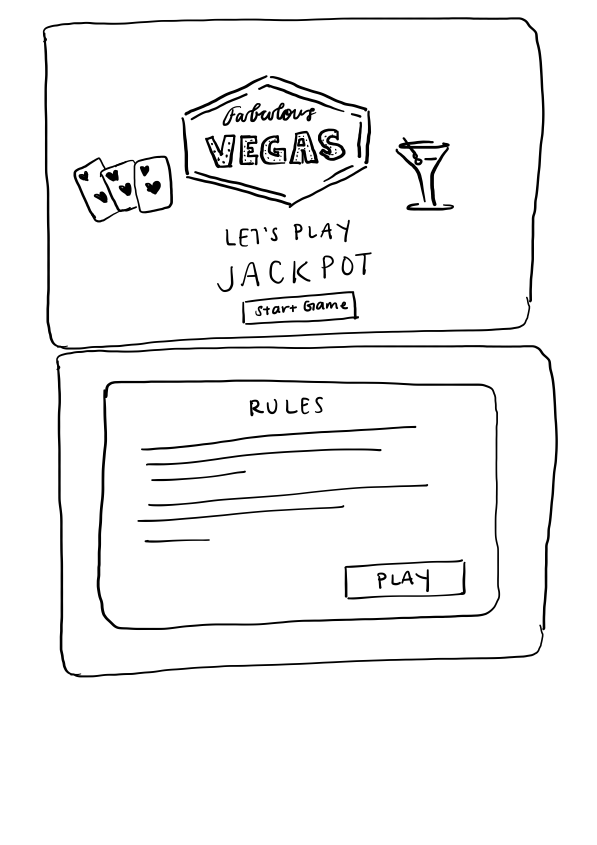 Fabulous
VEGAS
LET'S PLAY
JACKPOT
Start Game
RULES
PLAY